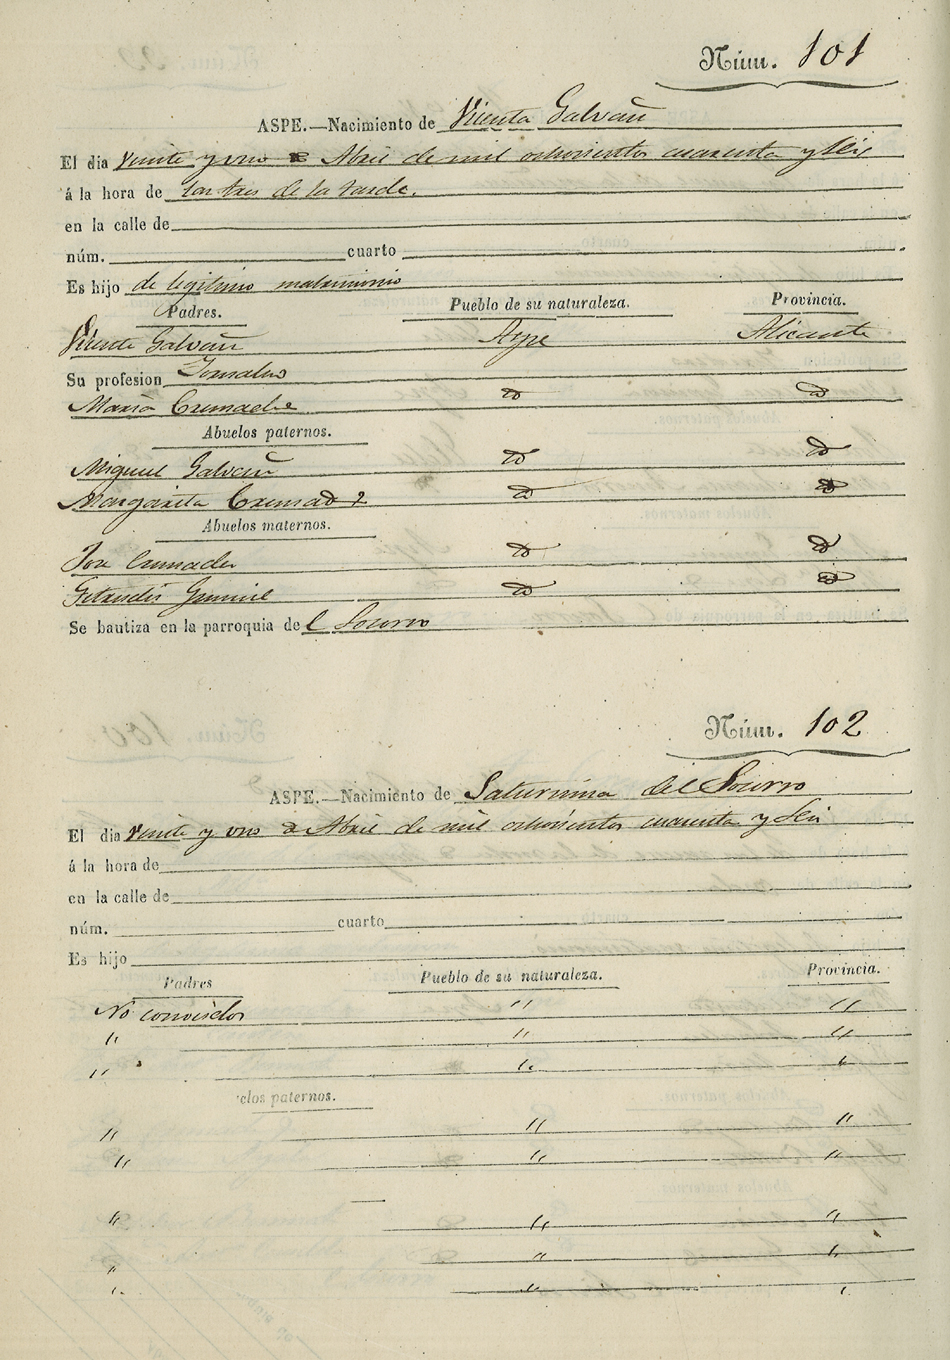 Núm. 101
ASPE.—Nacimiento de Vicenta Galvañ
El dia Veinte y uno de Abril de mil ochocientos cuarenta y Seis
á la hora de las tres de la tarde.
en la calle de
núm. cuarto
Es hijo de legitimo matrimonio
Padres. Pueblo de su naturaleza. Provincia.
Vicente Galvañ Aspe Alicante
Su profesion Jornalero
Maria Cremades
Abuelos paternos.
Miguel Galvañ
Margarita Cremades
Abuelos maternos.
Jose Cremades
Se bautiza en la parroquia de l Socorro
Núm. 102
ASPE.—Nacimiento de Saturnina del Socorro
El dia Veinte y uno de Abril de mil ochocientos cuarenta y Seis
á la hora de
en la calle de
núm. cuarto
Es hijo
Padres Pueblo de su naturaleza. Provincia.
No conocidos " "
" " "
" " "
elos paternos.
" " "
" " "
" " "
" " "
" " "